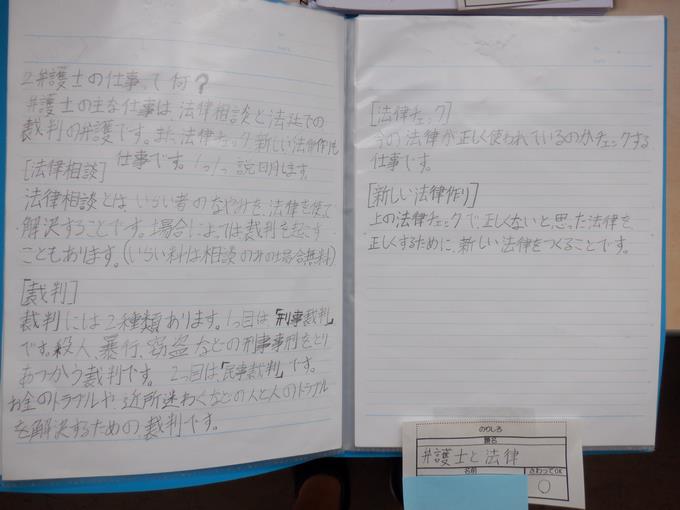 2 弁護士の仕事って何?
弁護士の主な仕事は、法律相談と法廷での
裁判の弁護です。また法律チェック、新しい法律作りも
仕事です。1つ1つ説明します。
[法律相談]
法律相談とは、いらい者のなやみを、法律を使って
解決することです。場合によっては裁判を起こす
こともあります。(いらい料は相談のみの場合無料)
[裁判]
裁判には2種類あります。1つ目は、「刑事裁判」
です。殺人、暴行、窃盗などの刑事事件をとり
あつかう裁判です。 2つ目は、「民事裁判」です。
お金のトラブルや、近所迷わくなどの人と人のトラブル
を解決するための、裁判です。
[法律チェック]
今の法律が正しく使われているのかチェックする
仕事です。
[新しい法律作り]
上の法律チェックで、正しくないと思った法律を、
正しくするために、新しい法律をつくることです。
のりしろ
題名
弁護士と法律
名前
さわってOK
○